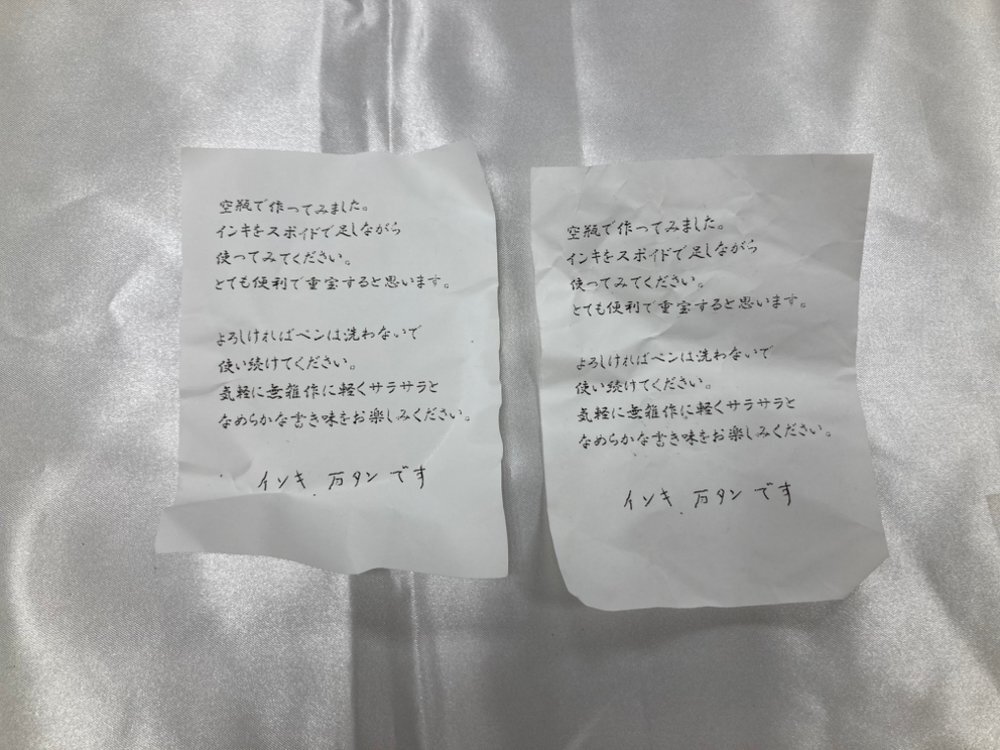 空瓶で作ってみました。
インキをスポイドで足しながら
使ってみてください。
とても便利で重宝すると思います。
よろしければペンは洗わないで
使い続けてください。
気軽に無雑作に軽くサラサラと
なめらかな書き味をお楽しみください。
インキ 万タンです
空瓶で作ってみました。
インキをスポイドで足しながら
使ってみてください。
とても便利で重宝すると思います。
よろしければペンは洗わないで
使い続けてください。
気軽に無雑作に軽くサラサラと
なめらかな書き味をお楽しみください。
インキ 万タンです